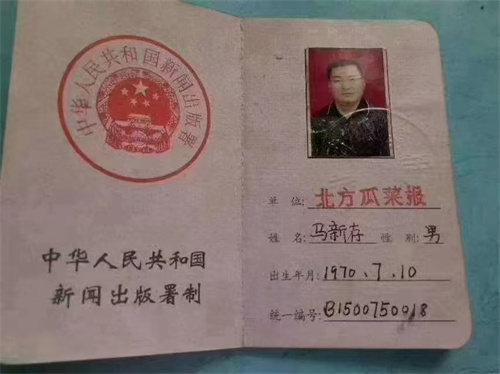 中华人民共和国新闻出版署
中华人民共和国
新闻出版署制
单 位: 北方瓜菜报
姓 名: 马新存 性 别: 男
出生年月: 1970.7.10
统一编号: B1500750018